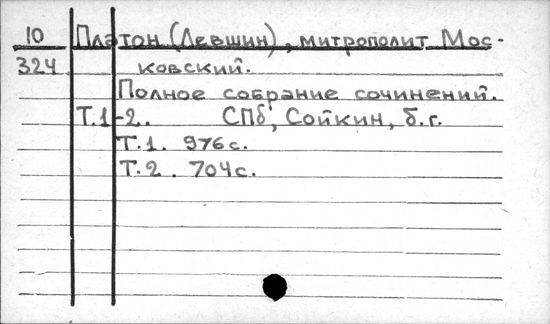 10 Платон (Левшин), митрополит Мос-
324 ковский.
Полное собрание сочинений.
Т.1-2. СПб, Сойкин, б.г.
Т.1. 976с.
Т.2. 704с.